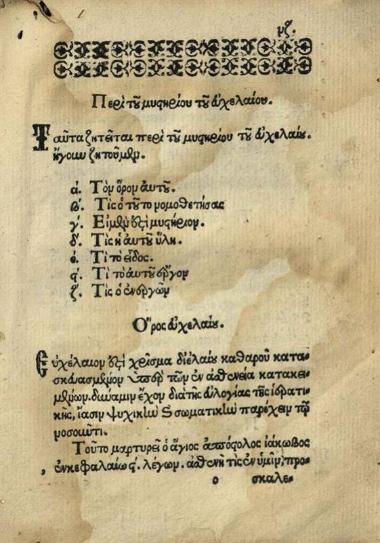 μζ.
Περὶ τοῦ μυστηρίου τοῦ εὐχελαίου.
Ταῦτα ζητεῖται περὶ τοῦ μυστηρίου τοῦ εὐχελαίου.
ἤγουν ζητοῦμεν.
α. Τὸν ὅρον αὐτοῦ.
β. Τίς ὁ τοῦτο νομοθετήσας
γ. Εἰ μὲν ἐστὶ μυστήριον.
δ. Τίς ἡ αὐτοῦ ὕλη.
ε. Τί τὸ εἶδος.
ς. Τί τὸ αὐτοῦ ἔργον
ζ. Τίς ὁ ἐνεργῶν
Ὅρος εὐχελαίου.
Εὐχέλαιον ἐστὶ χρίσμα δι' ἐλαίου καθαροῦ κατα-
σκευασμένον ὑπὲρ τῶν ἐν ἀσθενείᾳ κατακει-
μένων. δύναμιν ἔχον διὰ τῆς εὐλογίας τῆς ἱερατι-
κῆς, ἴασιν ψυχικὴν καὶ σωματικὴν παρέχειν τῷ
νοσοῦντι.
Τοῦτο μαρτυρεῖ ὁ ἅγιος ἀπόστολος ἰάκωβος
ἐν κεφαλαίῳ ε. λέγων. ἀσθενῆ τις ἐν ὑμῖν; προ-
σκαλε-